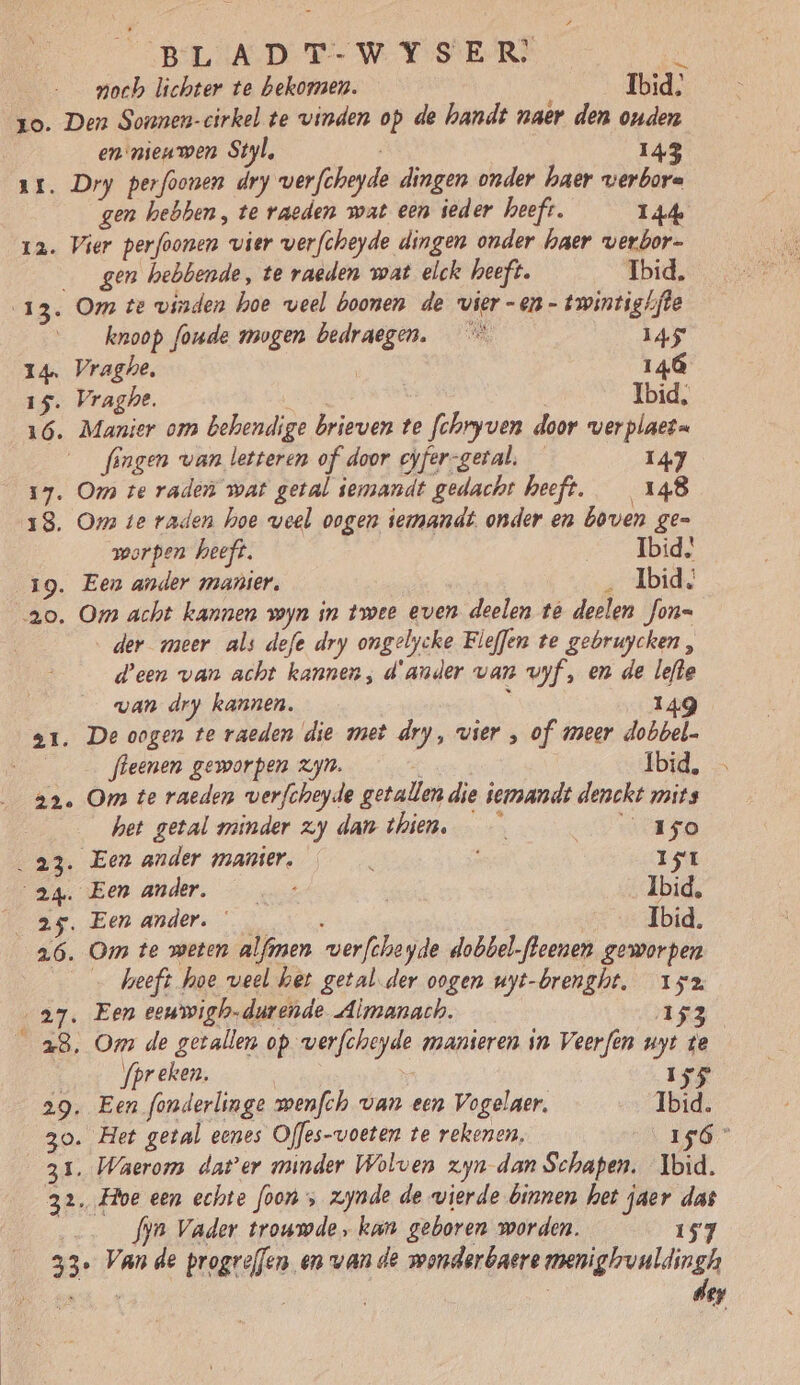 BLADT-WYSER.
noch lichter te bekomen. Ibid.
10. Den Sonnen-cirkel te vinden op de handt naer den ouden
en nieuwen Styl. 143
11. Dry perſoonen dry verſcheyde dingen onder haer verbor-
gen hebben, te raeden wat een ieder heeft. 144
12. Vier perſoonen vier verſcheyde dingen onder haer verbor-
gen hebbende, te raeden wat elck heeft. Ibid.
13. Om te vinden hoe veel boonen de vier-en-twintighſte
knoop ſoude mogen bedraegen. 145
14. Vraghe. 146
15. Vraghe. Ibid.
16. Manier om behendige brieven te ſchryven door verplaet-
ſingen van letteren of door cyfer-getal. 147
17. Om te raden wat getal iemandt gedacht heeft. 148
18. Om te raden hoe veel oogen iemandt onder en boven ge-
worpen heeft. Ibid.
19. Een ander manier. Ibid.
20. Om acht kannen wyn in twee even deelen te deelen ſon-
der meer als deſe dry ongelycke Fleſſen te gebruycken,
d'een van acht kannen, d'ander van vyf, en de leſte
van dry kannen. 149
21. De oogen te raeden die met dry, vier, of meer dobbel-
ſteenen geworpen zyn. Ibid.
22. Om te raeden verſcheyde getallen die iemandt denckt mits
het getal minder zy dan thien. 150
23. Een ander manier. 151
24. Een ander. Ibid.
25. Een ander. Ibid.
26. Om te weten alſmen verſcheyde dobbel-ſteenen geworpen
heeft hoe veel het getal der oogen uyt-brenght. 152
27. Een eeuwigh-durende Almanach. 153
28. Om de getallen op verſcheyde manieren in Veerſen uyt te
ſpreken. 155
29. Een ſonderlinge wenſch van een Vogelaer. Ibid.
30. Het getal eenes Oſſes-voeten te rekenen. 156
31. Waerom dat'er minder Wolven zyn dan Schapen. Ibid.
32. Hoe een echte ſoon, zynde de vierde binnen het jaer dat
ſyn Vader trouwde, kan geboren worden. 157
33. Van de progreſſen en van de wonderbaere menighvuldingh
der